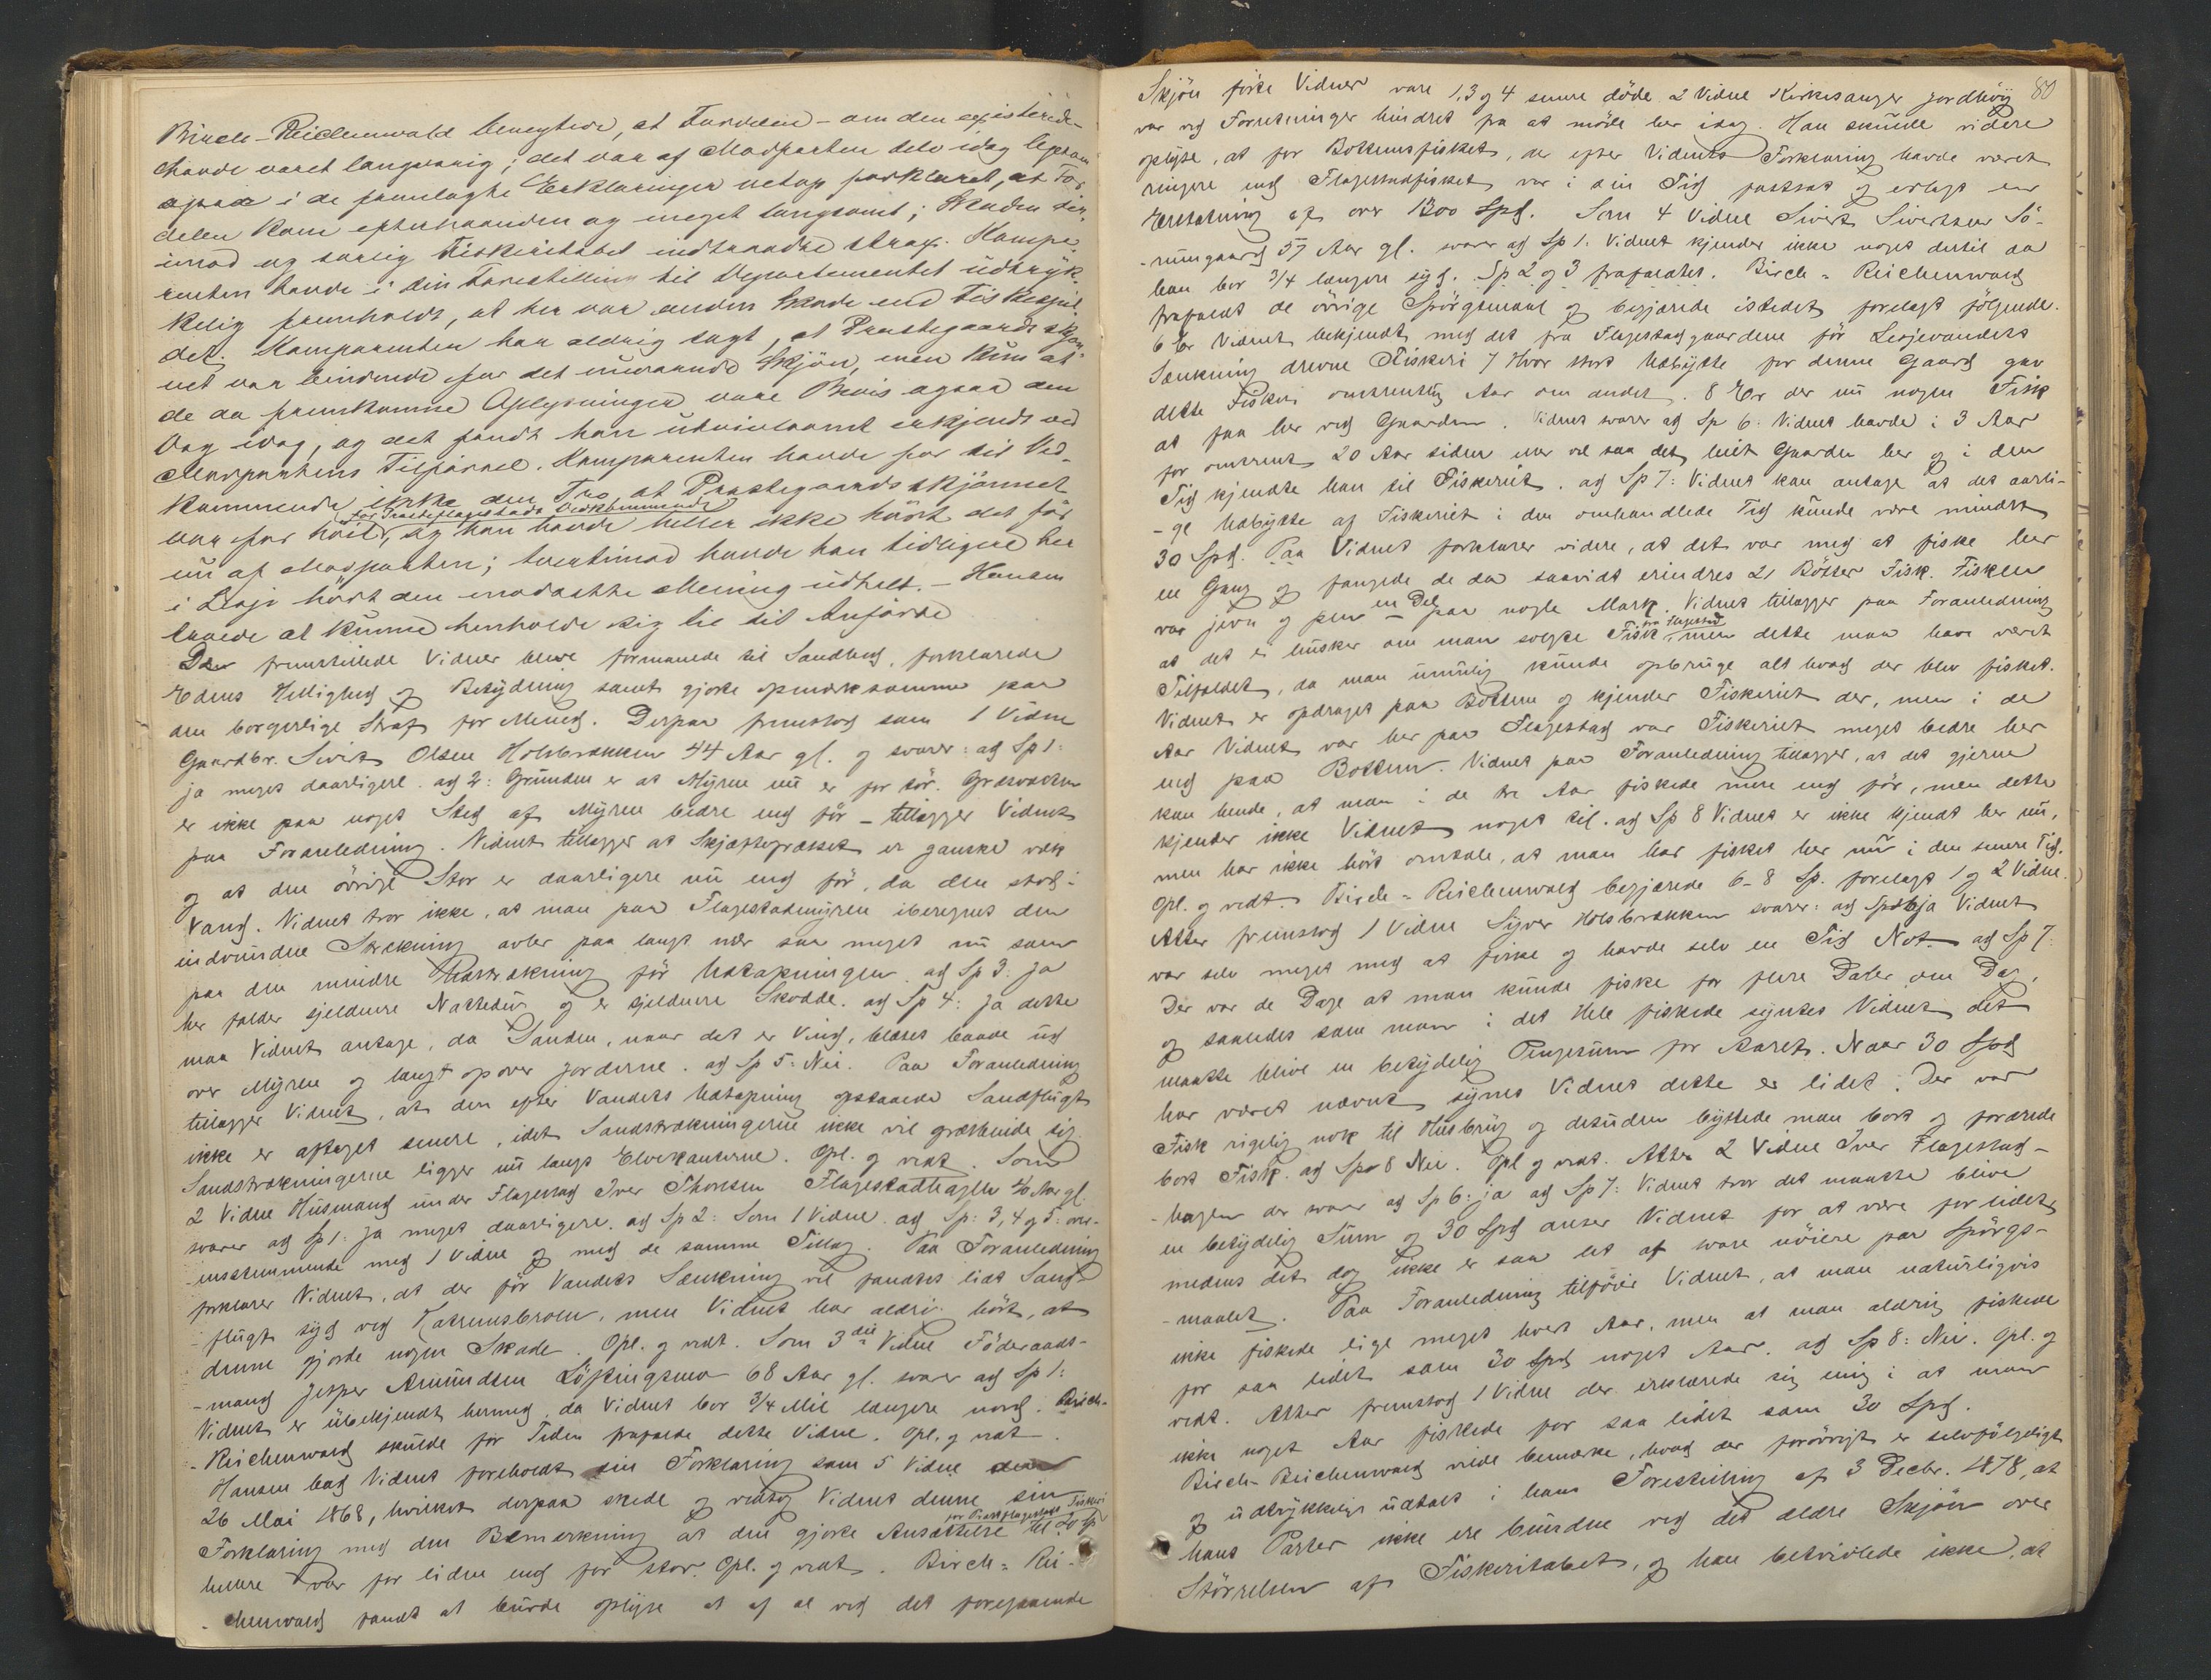 Birch-Reichenwald benegtede, at Fordelen - om den existerede
havde været langvarig; det var af Modparten selv idag
i de fremlagte Erklæringer netop forklaret, at For-
delen kom efterhaanden og meget langsomt; Skaden der-
imod og særlig Fiskeritabet indtraadte strax. Kompa-
renten havde i sin Forestilling til Departementet udtryk-
kelig fremholdt, at her var anden Skade end Fiskespil-
det. Komparenten har aldrig sagt, at Præstegaardsskjøn-
net var bindende for det nuværende Skjøn, men kun at
de da fremkomne Oplysninger vare Bevis ogsaa den
Dag idag, og det fandt han utvivlsomt erkjendt ved
Modpartens Tilførsel. Komparenten havde for sit Ved-
kommende ikke den Tro, at Præstegaardsskjønnet
for Præsteflagestads Vedkommende
var for høit, og han havde heller ikke hørt det før
nu af Modparten; tvertimod havde han tidligere her
i Lesje hørt den modsatte Mening udtalt. - Hansen
troede at kunne henholde sig til sit Anførte
De fremstillede Vidner bleve formanede til Sandhed, forklarede
Edens Hellighed og Betydning samt gjorte opmærksomme paa
den borgerlige Straf for Mened. Derpaa fremstod som 1 Vidne
Gaardbr. Sivert Olsen Holsbrækken 44 Aar gl. og svarer: ad Sp 1:
ja meget daarligere. ad 2: Grunden er at Myren nu er for tør. Græsvæxten
er ikke paa noget Sted af Myren bedre end før - tillægger Vidnet
paa Foranledning. Vidnet tillægger at Skjæftegræsset er ganske væk
og at den øvrige Stor er daarligere nu end før, da den stod i
Vand. Vidnet tror ikke, at man paa Flagestadmyren iberegnet den
indvundne Strækning avler paa langt nær saa meget nu som
paa den mindre Udstrækning før Udtapningen. ad Sp 3: Ja
her falder sjeldnere Nattedug og er sjeldnere Skodde. ad Sp 4: ja dette
maa Vidnet antage, da Sanden, naar det er Vind, blæses baade ud
over Myren og langt op over Jorderne. ad Sp 5: Nei. Paa Foranledning
tillægger Vidnet, at den efter Vandets Udtapning opstaaede Sandflugt
ikke er aftaget senere, idet Sandstrækningerne ikke vil græsbinde sig.
Sandstrækningerne ligger nu langs Elvekanterne. Opl. og vedt. Som
2 Vidne Husmand under Flagestad Iver Thoresen Flagestadhagen 40 Aar gl.
svarer ad Sp 1: Ja meget daarligere. ad Sp 2: Som 1 Vidne. ad Sp: 3, 4 og 5: over-
ensstemmende med 1 Vidne og med de samme Tillæg. Paa Foranledning
forklarer Vidnet, at der før Vandets Sænkning vel fandtes lidt Sand-
flugt syd ved, men Vidnet har aldrig hørt, at
denne gjorde nogen Skade. Opl. og vedt. Som 3die Vidne Føderaads-
- mand Jesper Amundsen Løftingsmo 68 Aar gl. svarer ad Sp 1:
Vidnet er ubekjendt hermed, da Vidnet bor 3/4 Mil længere nord. Birch-
- Reichenwald skulde for Tiden frafalde dette Vidne. Opl. og vedt.
Hansen bad Vidnet foreholdt sin Forklaring som 5 Vidne
26 Mai 1868, hvilket derpaa skede og vedtog Vidnet denne sin
for Præstflagestads Fiskeri
Forklaring med den Bemærkning at den gjorte Ansættelse til 20 Sp
hellere var for liden end for stor. Opl. og vedt. Birch-Rei-
- chenwald fandt at burde oplyse at af de ved det foregaaende

80
Skjøn førte Vidner vare 1, 3 og 4 senere døde. 2 Vidne Kirkesanger Jordhøy
var ved Forretninger hindret fra at møde her idag. Han skulde videre
oplyse, at for Bottensfisket, der efter Vidnets Forklaring havde været
ringere end Flagestadfisket var i sin Tid fastsat og erlagt en
Erstatning af over 1300 Spd. Som 4 Vidne Sivert Sivertsen Sø-
- rumgaard 57 Aar gl. svarer ad Sp 1. Vidnet kjender ikke noget dertil da
han bor 3/4 længere syd. Sp 2 og 3 frafaldtes. Birch-Reichenwald
frafaldt de øvrige Spørgsmaal og begjærede istedet forelagt følgende.
6 Er Vidnet bekjendt med det fra Flagestadgaardene før Lesjevandets
Sænkning drevne Fiskeri 7 Hvor stort Udbytte for denne Gaard gav
dette Fiskeri omtrentlig Aar om andet. 8 Er der nu nogen Fisk
at faa her ved Gaarden. Vidnet svarer ad Sp 6: Vidnet havde i 3 Aar
for omtrent 20 Aar siden mer vel saa det leiet Gaarden her og i den
Tid kjendte han til Fiskeriet. ad Sp 7: Vidnet kan antage at det aarli-
- ge Udbytte af Fiskeriet i den omhandlede Tid kunde være mindst
30 Spd. Paa Vidnet forklarer videre, at det var med at fiske her
en Gang og fangede de da saavidt erindres 21 Bøtter Fisk. Fisken
en Del
var jevn og pen - paa nogle Mark. Vidnet tillægger paa Foranledning
fra Flagestad
at det ei husker om man solgte Fisk men dette maa have været
Tilfældet, da man umulig kunde opbruge alt hvad der blev fisket.
Vidnet er opdraget paa Botten og kjender Fiskeriet der, men i de
Aar Vidnet var her paa Flagestad var Fiskeriet meget bedre her
end paa Botten. Vidnet paa Foranledning tillægger, at det gjerne
kan hende, at man i de tre Aar fiskede mere end før, men dette
kjender ikke Vidnet noget til. ad Sp 8 Vidnet er ikke kjendt her nu,
men har ikke hørt omtale, at man har fisket her nu i den senere Tid.
Opl. og vedt. Birch-Reichenwald begjærede 6-8 Sp. forelagt 1 og 2 Vidne.
Atter fremstod 1 Vidne Syver Holsbrækken svarer: ad Sp 6 ja Vidnet
var selv meget med at fiske og havde selv en Tid Not. ad Sp 7:
Der var de Dage at man kunde fiske for flere Daler om Dag,
og saaledes som man i det Hele fiskede syntes Vidnet det
maatte blive en betydelig Pengesum for Aaret. Naar 30 Spd
har været nævnt synes Vidnet dette er lidet. Der var
Fisk rigelig nok til Husbrug og desuden byttede man bort og forærede
bort Fisk. ad Sp 8 Nei. Opl og vedt. Atter 2 Vidne Iver Flagestad-
- hagen der svarer ad Sp 6: ja ad Sp 7: Vidnet tror det maatte blive
en betydelig Sum og 30 Spd anser Vidnet for at være for lidet,
medens det dog ikke er saa let at svare nøiere paa Spørgs-
- maalet. Paa Foranledning tilføier Vidnet, at man naturligvis
ikke fiskede lige meget hvert Aar, men at man aldrig fiskede
for saa lidet som 30 Spd noget Aar. ad Sp 8: Nei. Opl. og
vedt. Atter fremstod 1 Vidne der erklærede sig enig i at man
ikke noget Aar fiskede for saa lidet som 30 Spd.
Birch-Reichenwald vilde bemærke, hvad der forøvrigt er selvfølgeligt
og udtrykkeligt udtalt i hans Forestilling af 3 Decbr. 1878, at
hans Parter ikke ere bundne ved det ældre Skjøn over
Størrelsen af Fiskeritabet, og han betvivlede ikke, at